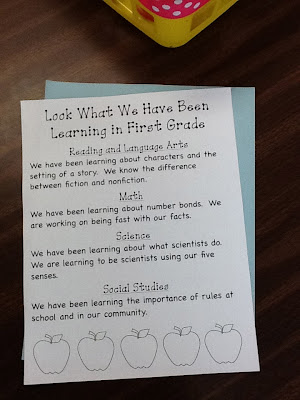 Look What We Have Been
Learning in First Grade
Reading and Language Arts
We have been learning about characters and the
setting of a story. We know the difference
between fiction and nonfiction.
Math
We have been learning about number bonds. We
are working on being fast with our facts.
Science
We have been learning about what scientists do.
We are learning to be scientists using our five
senses.
Social Studies
We have been learning the importance of rules at
school and in our community.